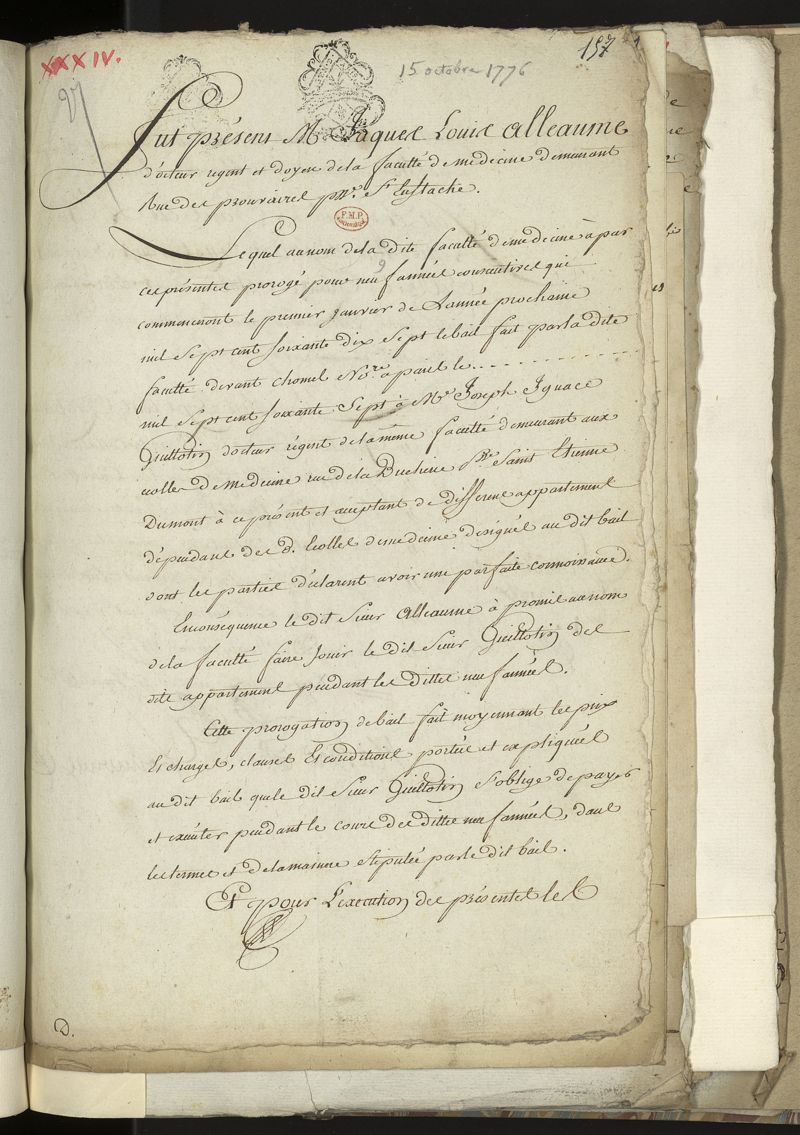 XXXIV.
157
15 octobre 1776
Fut présent M. Jaques Louis Alleaume
docteur regent et doyen de la faculté de medecine demeurant
rue des prouvaires psse. St Eustache.
F.M.P.
Lequel au nom de la dite faculté de medecine à par
9
ces présentes prorogé pour neuf années consecutives qui
commenceront le premier janvier de L'année prochaine
mil sept cent soixante dix sept le bail fait par la dite
faculté devant Chomel Nore. a paris le
mil sept cent soixante sept à Mr. Joseph Ignace
Guillotin docteur régent de la même faculté demeurant aux
ecolles de Medecine rue de la Bucherie psse Saint Etienne
Dumont à ce présent et acceptant de different appartement
dépendant des d. Ecolles de medecine designés au dit bail
dont les parties déclarent avoir une parfaite connoissance.
En conséquence le dit Sieur Alleaume à promis au nom
de la faculté faire jouir le dit Sieur Guillotin des
dits appartement pendant les dittes neuf années.
Cette prorogation de bail fait moyennant les prix
Et charges, clauses Et conditions portées et expliquées
au dit bail que le dit Sieur Guillotin s'oblige de payer
et executer pendant le cours des dittes neuf années, dans
les termes et de la maniere stipulée par le dit bail.
Et pour L'execution des présentes les
D.